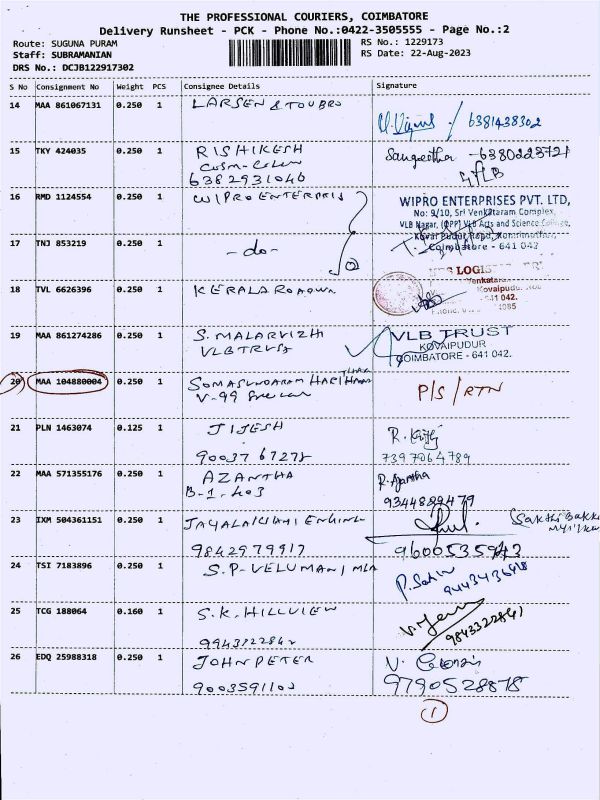 THE PROFESSIONAL COURIERS, COIMBATORE
Delivery Runsheet - PCK - Phone No.:0422-3505555 - Page No.:2
Route: SUGUNA PURAM RS No.: 1229173
Staff: SUBRAMANIAN RS Date: 22-Aug-2023
DRS No.: DCJB122917302
S No Consignment No Weight PCS Consignee Details Signature
14 MAA 861067131 0.250 1 LARSEN & TOUBRO
6381438302
15 TKY 424035 0.250 1 RISHIKESH Sangeetha - 6380223721
6382931040 VLB
16 RMD 1124554 0.250 1 WIPRO ENTERPRIS WIPRO ENTERPRISES PVT. LTD,
No: 9/10, Sri Venkataram Complex,
VLB Nagar, (OPP) VLB Arts and Science College,
17 TNJ 853219 0.250 1 -do- Kovai Pudur Road,
Coimbatore - 641 042
18 TVL 6626396 0.250 1 KERALA LOGIS
Kovaipudur,
641 042.
19 MAA 861274286 0.250 1 S. MALARVIZHI VLB TRUST
VLB TRUST KOVAIPUDUR
COIMBATORE - 641 042.
20 MAA 104880004 0.250 1 SOMASUNDARAM HARI
V-99 P/S / RTN
21 PLN 1463074 0.125 1 JIJESH R.
90037 67278 7397064789
22 MAA 571355176 0.250 1 AZANTHA R. Ajantha
B-1-403 9344889479
23 IXM 504361151 0.250 1 Sakthi
9842979917 9600535943
24 TSI 7183896 0.250 1 S.P-VELUMANI MLA P.
9443436418
25 TCG 188064 0.160 1 S.K. HILLVIEW V.
9943322842 9843322841
26 EDQ 25988318 0.250 1 JOHN PETER V.
9003591102 9790528878
1